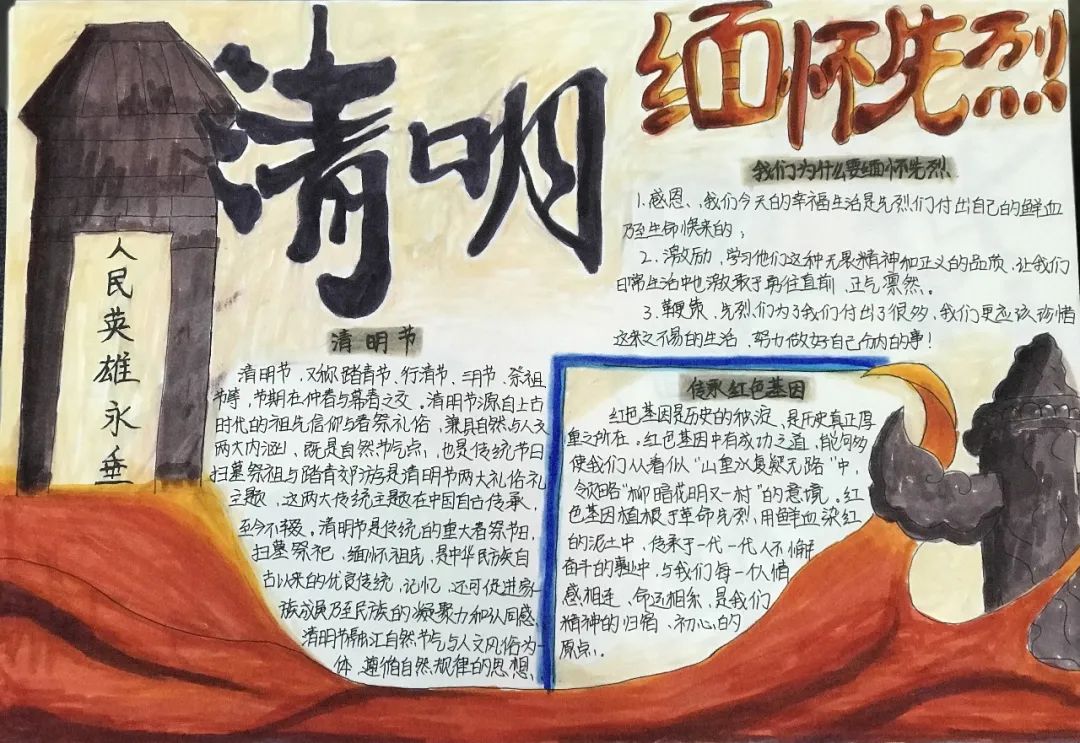 清明
缅怀先烈!
人民英雄永垂
我们为什么要缅怀先烈
1.感恩、我们今天的幸福生活是先烈们付出自己的鲜血
乃至生命换来的;
2.激励,学习他们这种无畏精神和正义的品质,让我们
日常生活中也激敢于勇往直前,正气凛然。
3.鞭策、先烈们为了我们付出了很多,我们更应该珍惜
这来之不易的生活,努力做好自己分内的事!
清明节
清明节,又称踏青节、行清节、三月节、祭祖
节等,节期在仲春与暮春之交。清明节源自上古
时代的祖先信仰与春祭礼俗,兼具自然与人文
两大内涵,既是自然节气点,也是传统节日
扫墓祭祖与踏青郊游是清明节两大礼俗礼
主题,这两大传统主题在中国自古传承,
至今不辍。清明节是传统的重大春祭节日,
扫墓祭祀、缅怀祖先,是中华民族自
古以来的优良传统,记忆,还可促进家
族成员乃至民族的凝聚力和认同感,
清明节融汇自然节气与人文风俗为一
体,遵循自然规律的思想,
传承红色基因
红色基因是历史的积淀,是历史真正厚
重之所在。红色基因中有成功之道,能够
使我们从看似“山重水复疑无路”中,
领略“柳暗花明又一村”的意境。红
色基因植根于革命先烈,用鲜血染红
的泥土中,传承于一代一代人不懈
奋斗的事业中,与我们每一个人情
感相连、命运相系,是我们
精神的归宿、初心的
原点。